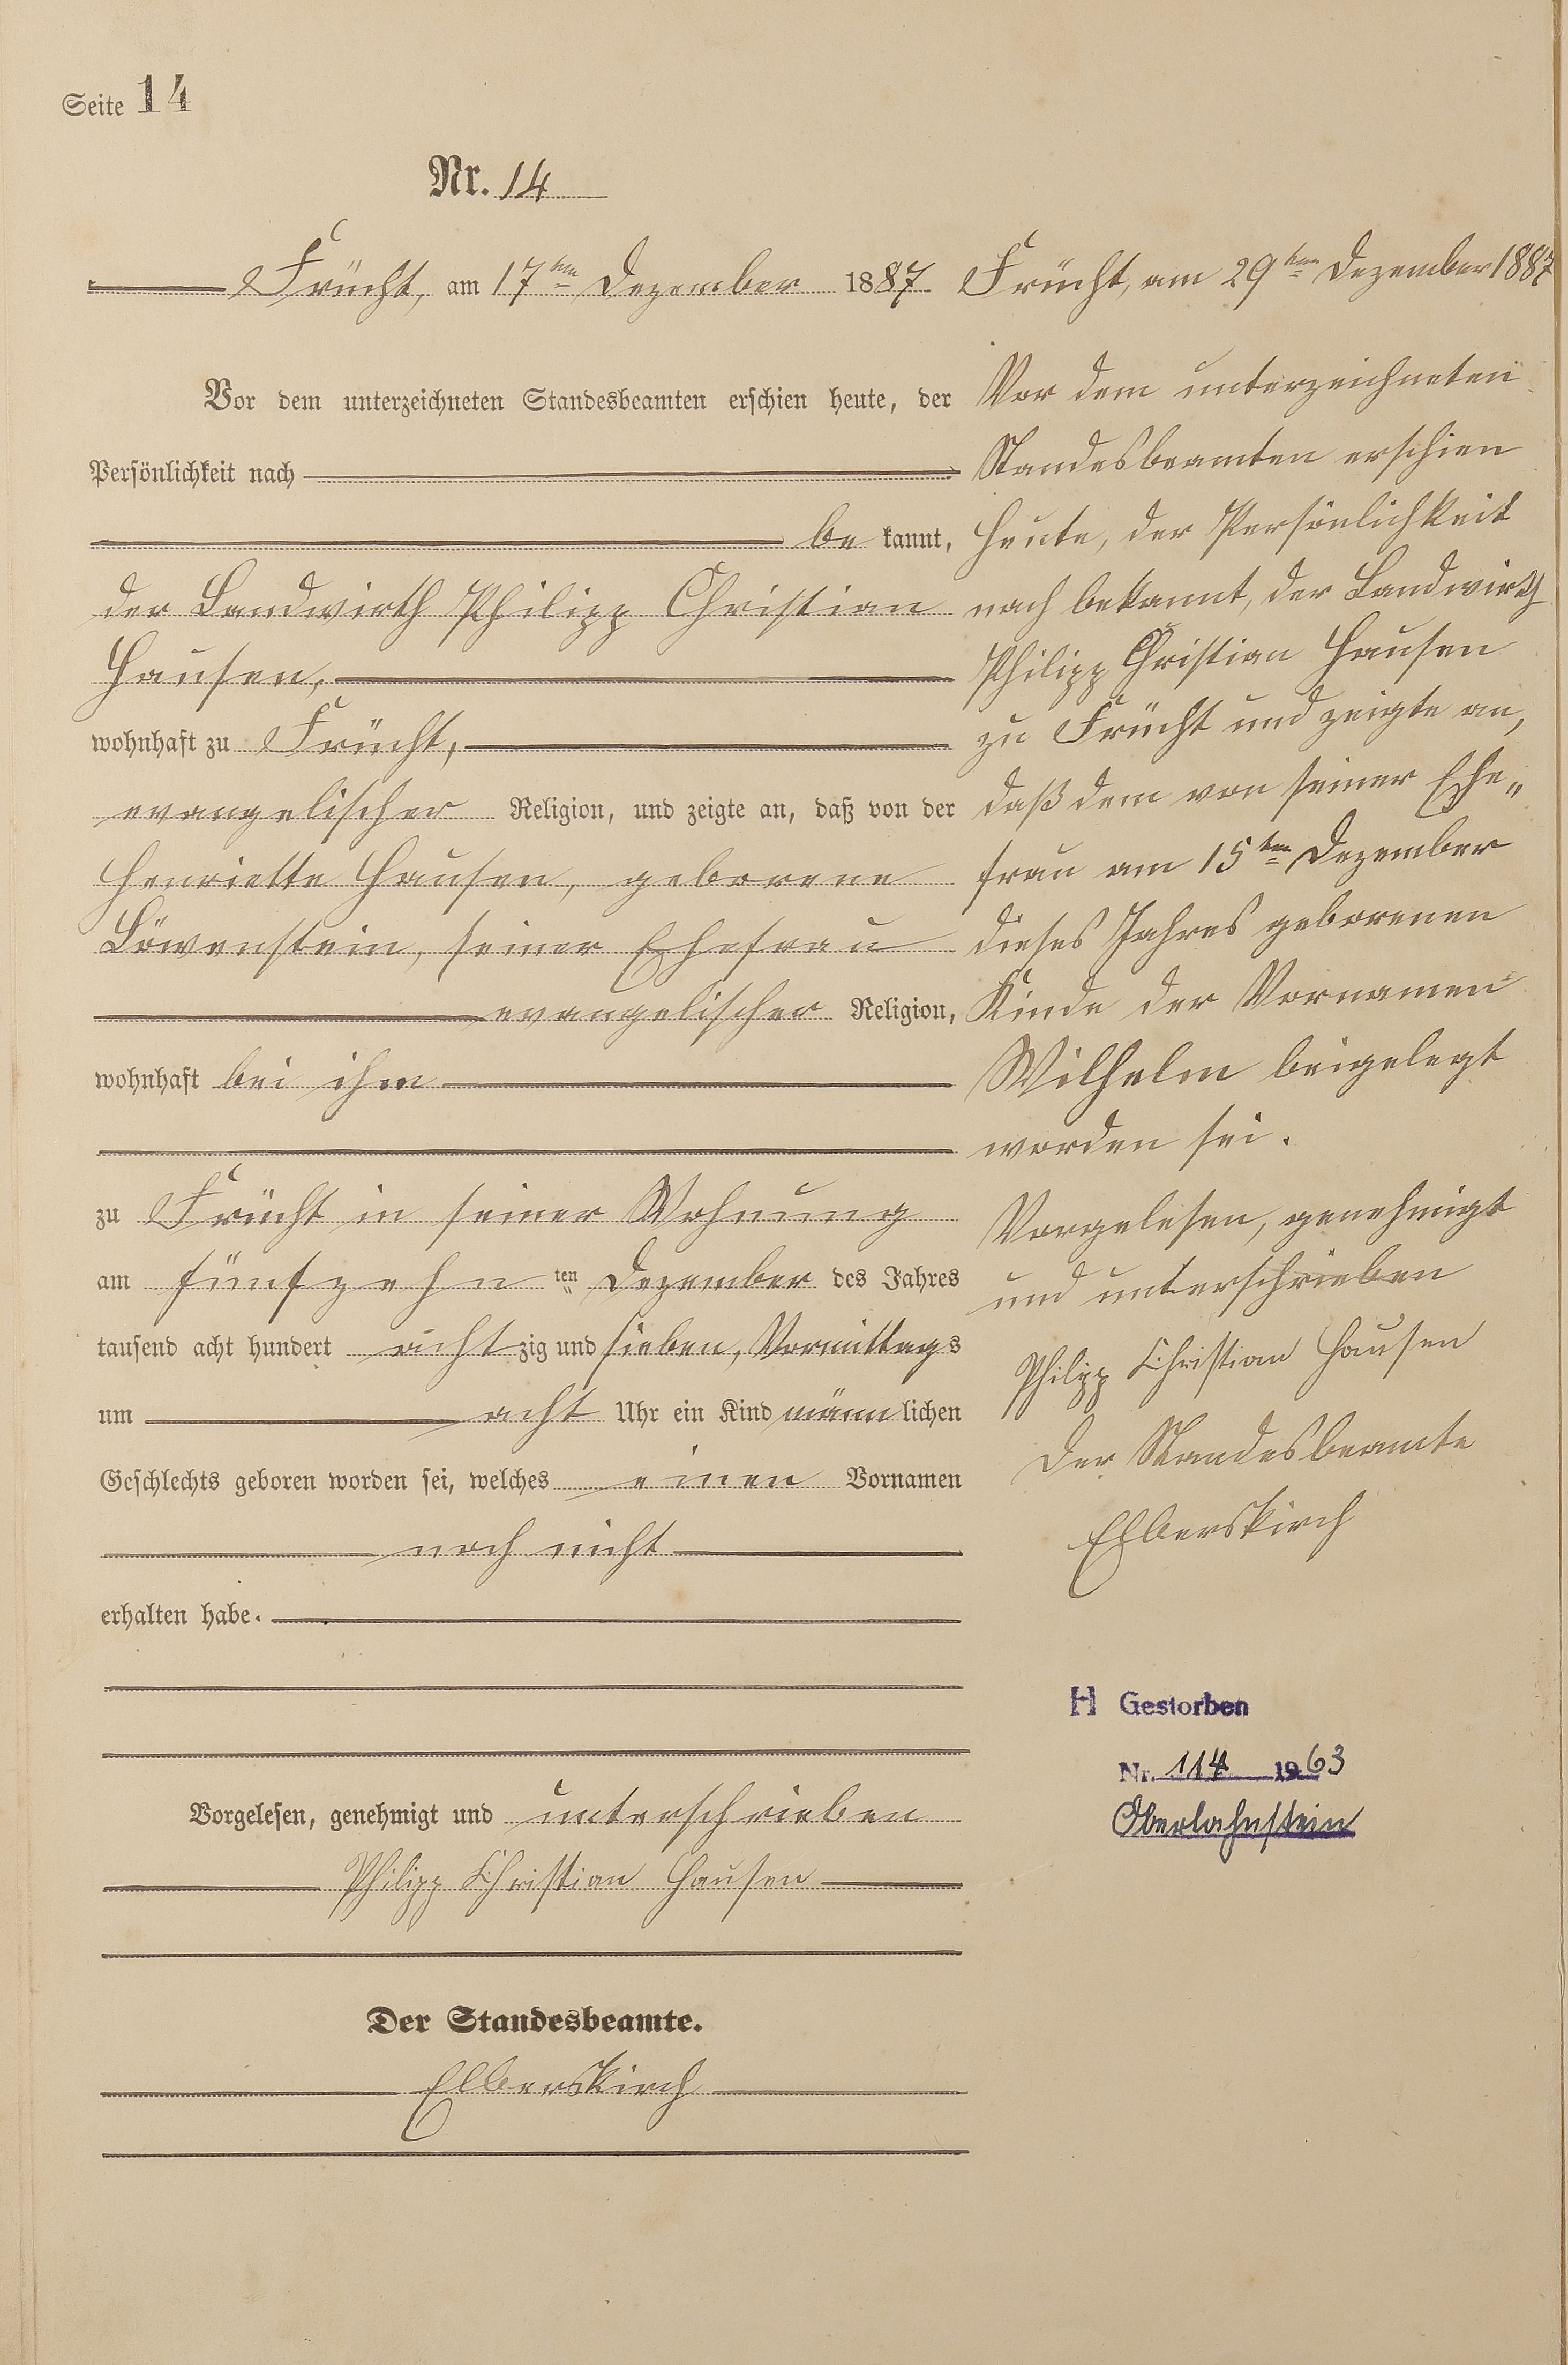 Seite 14
Nr. 14
Frücht, am 17ten Dezember 1887
Vor dem unterzeichneten Standesbeamten erschien heute, der
Persönlichkeit nach
bekannt,
der Landwirth Philipp Christian
Hausen,
wohnhaft zu Frücht,
evangelischer Religion, und zeigte an, daß von der
Henriette Hausen, geborene
Löwenstein, seiner Ehefrau
evangelischer Religion,
wohnhaft bei ihm
zu Frücht in seiner Wohnung
am fünfzehnten Dezember des Jahres
tausend acht hundert achtzig und sieben, Vormittags
um acht Uhr ein Kind männlichen
Geschlechts geboren worden sei, welches einen Vornamen
noch nicht
erhalten habe.
Vorgelesen, genehmigt und unterschrieben
Philipp Christian Hausen
Der Standesbeamte.
Elberskirch
Frücht, am 29ten Dezember 1887
Vor dem unterzeichneten
Standesbeamten erschien
heute, der Persönlichkeit
nach bekannt, der Landwirth
Philipp Christian Hausen
zu Frücht und zeigte an,
daß dem von seiner Ehe„
frau am 15ten Dezember
dieses Jahres geborenen
Kinde der Vornamen
Wilhelm beigelegt
worden sei.
Vorgelesen, genehmigt
und unterschrieben
Philipp Christian Hausen
Der Standesbeamte
Elberskirch
H Gestorben
Nr. 114 1963
Oberlahnstein